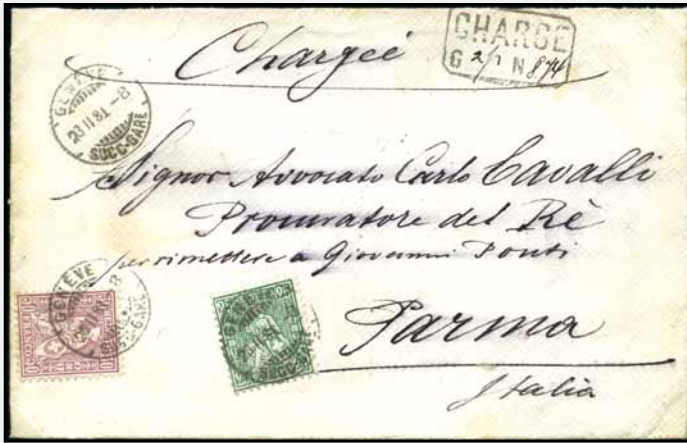 Chargée
CHARGE
G 2/1 N 874
GENÈVE
23 II 81 - 8
SUCC-GARE
Signor Avvocato Carlo Cavalli
Procuratore del Rè
per rimettere a Giovanni Ponti
Parma
Italia
GENÈVE
SUCC-GARE
GENÈVE
23 II 81
SUCC-GARE